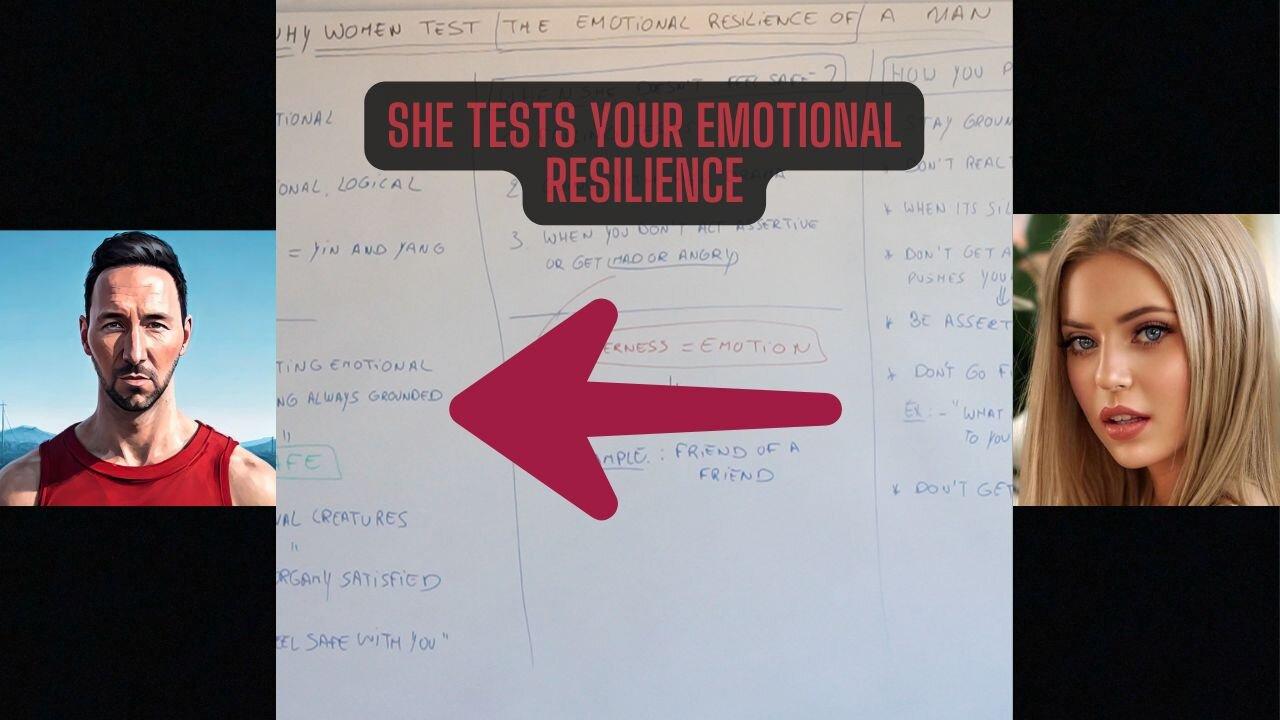 WHY WOMEN TEST THE EMOTIONAL RESILIENCE OF A MAN
SHE TESTS YOUR EMOTIONAL
RESILIENCE
TIONAL
ONAL, LOGICAL
= YIN AND YANG
TING EMOTIONAL
NG ALWAYS GROUNDED
"
FE
AL CREATURES
"
SATISFIED
EEL SAFE WITH YOU"
WHEN SHE DOESN'T FEEL SAFE?
2
3. WHEN YOU DON'T ACT ASSERTIVE
OR GET (MAD OR ANGRY)
ERNESS = EMOTION
MPLE. : FRIEND OF A
FRIEND
HOW YOU P
STAY GROUN
DON'T REACT
* WHEN ITS SIL
* DON'T GET A
PUSHES YOU
* BE ASSERT
* DON'T GO F
EX: - "WHAT
TO YOU
* DON'T GET